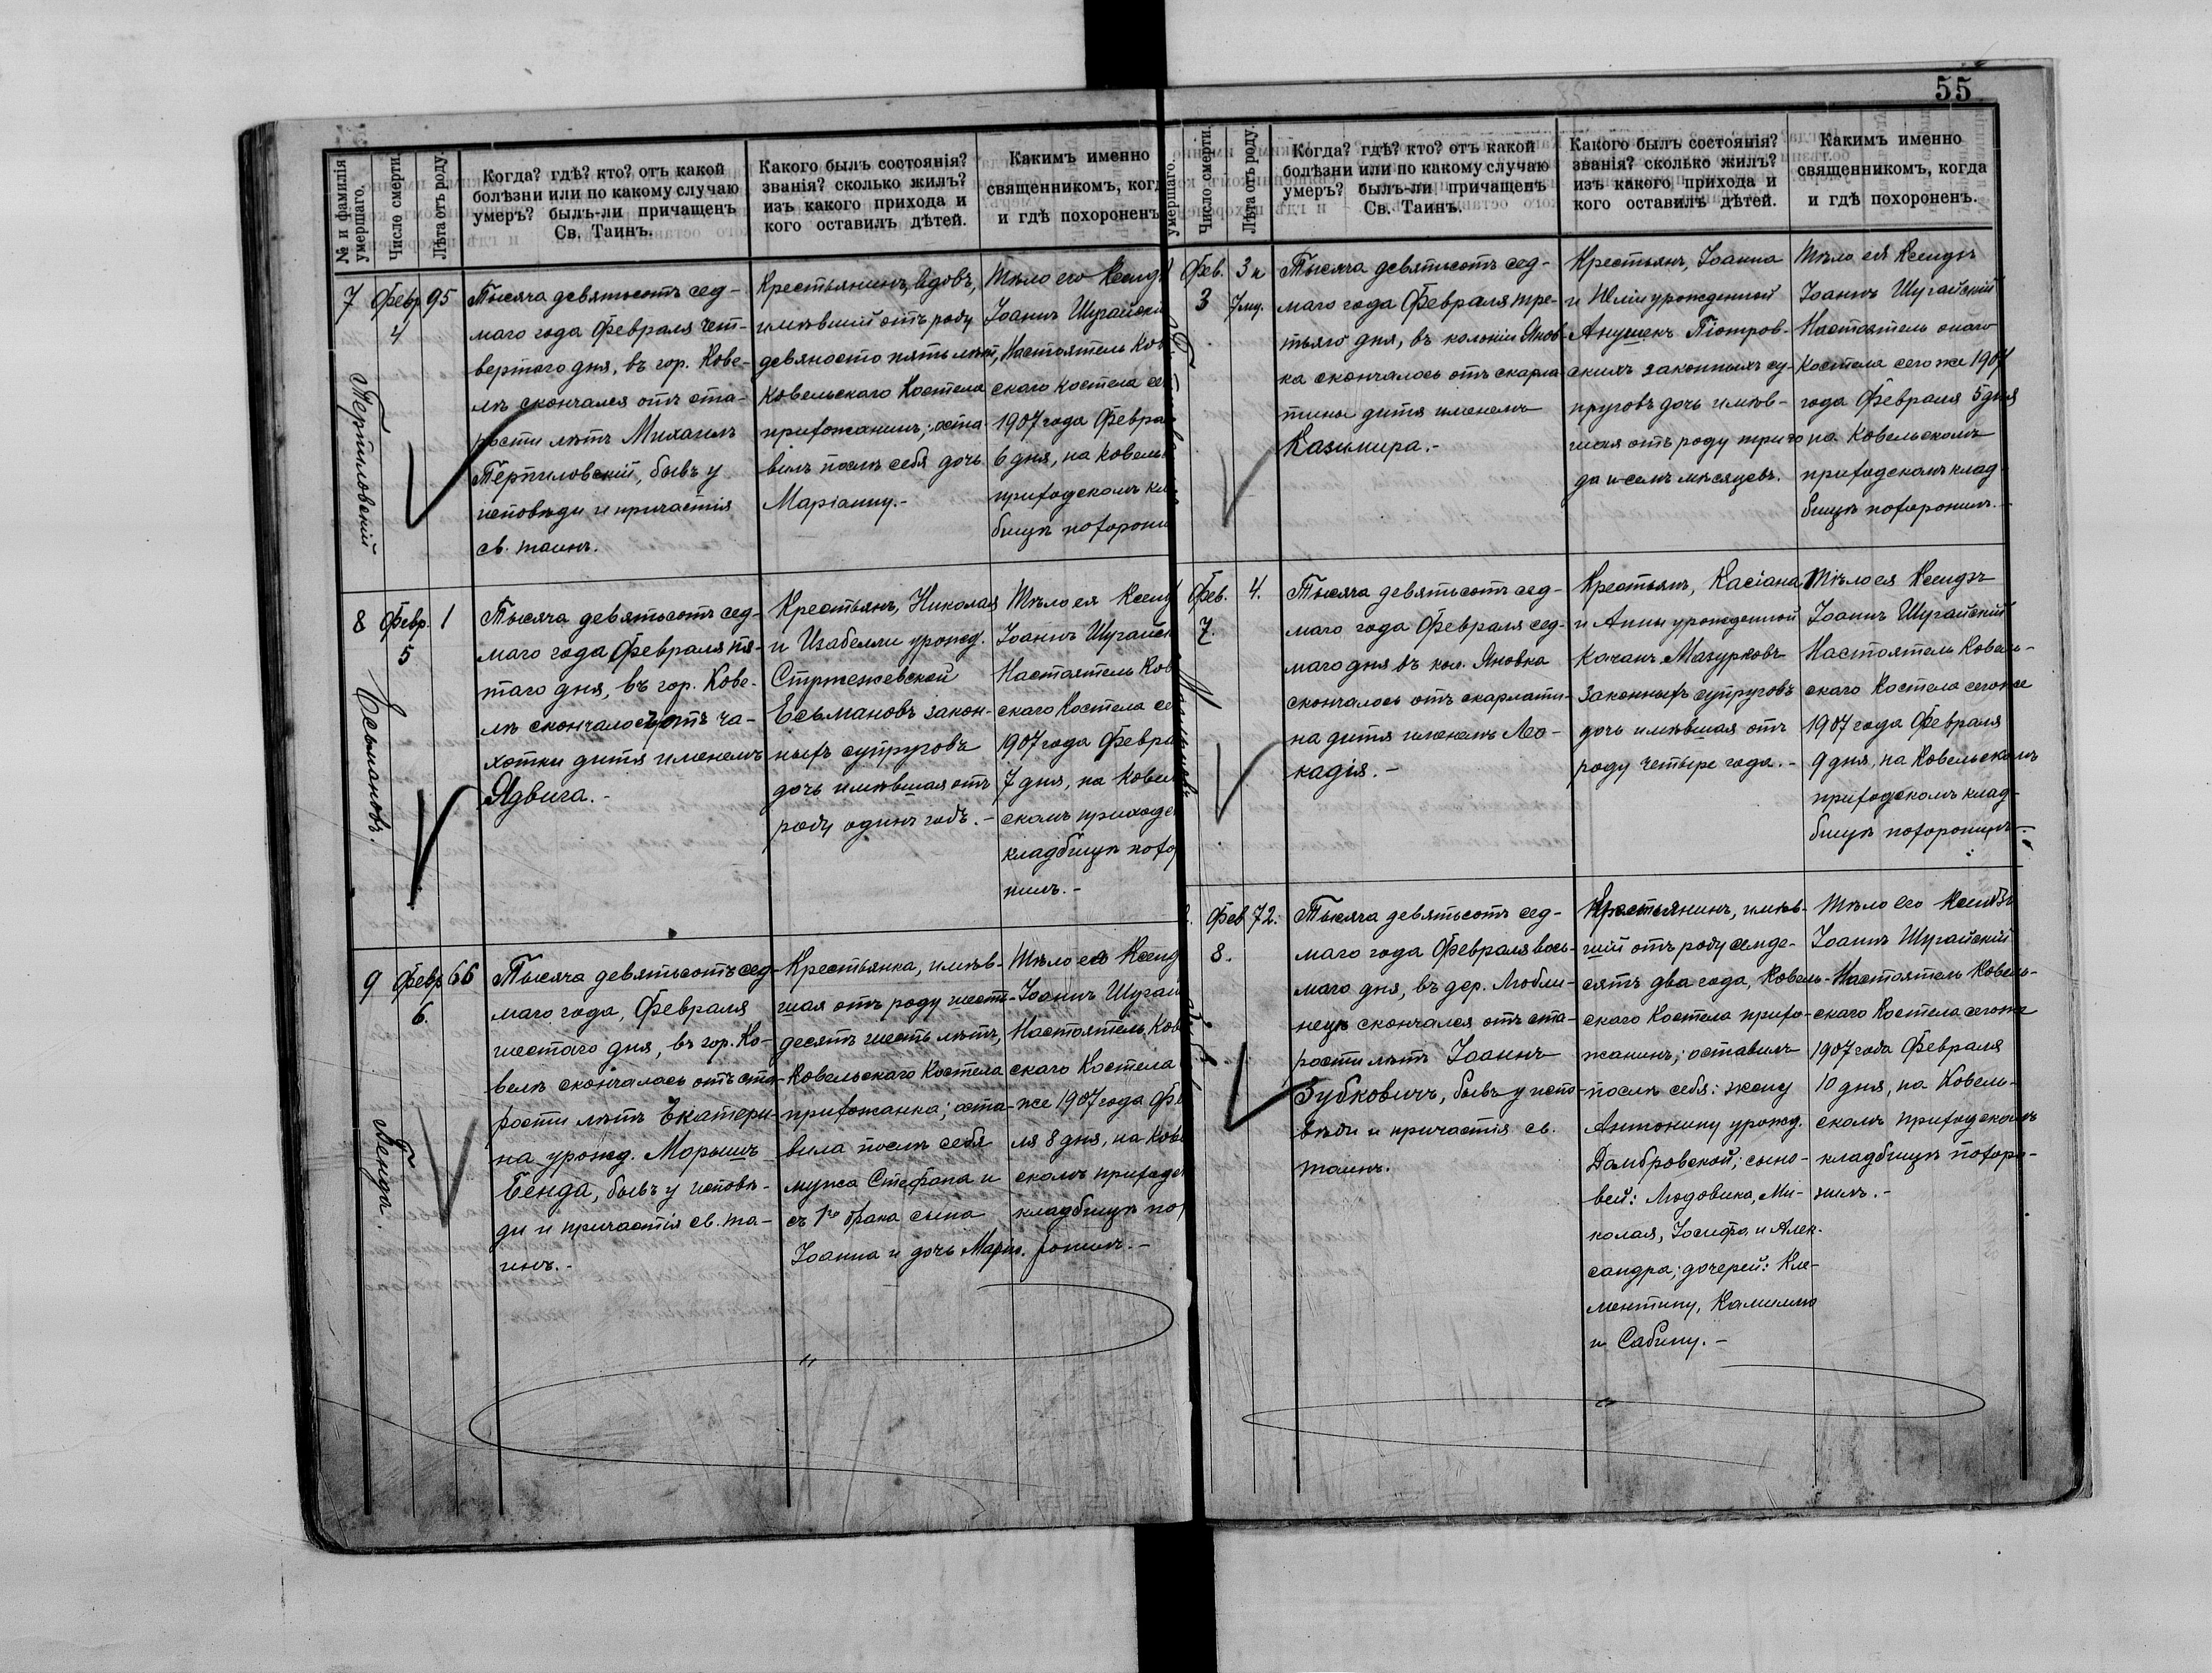 55
№ и фамилія умершаго.
Число смерти.
Лѣта отъ роду.
Когда? гдѣ? кто? отъ какой
болѣзни или по какому случаю
умеръ? былъ-ли причащенъ
Св. Таинъ.
Какого былъ состоянія?
званія? сколько жилъ?
изъ какого прихода и
кого оставилъ дѣтей.
Какимъ именно
священникомъ, когд
и гдѣ похороненъ
7
Терпиловскій
Февр
4
95
Тысяча девятьсотъ сед-
маго года Февраля чет-
вертаго дня, въ гор. Кове-
лѣ скончался отъ ста-
рости лѣтъ Михаилъ
Терпиловскій, бывъ у
исповѣди и причастія
св. таинъ.
Крестьянинъ, вдовъ,
имѣвшій отъ роду
девяносто пять лѣтъ,
Ковельскаго Костела
прихожанинъ; оста-
вилъ послѣ себя дочь
Маріанну.-
Тѣло его Ксенд
Іоаннъ Шугайскі
Настоятель Ков
скаго Костела се
1907 года Феврал
6 дня, на Ковель
приходскомъ кла
бищѣ похорони
8
Есьмановъ.
Февр.
5
1
Тысяча девятьсотъ сед-
маго года Февраля пя-
таго дня, въ гор. Кове-
лѣ скончалось отъ ча-
хотки дитя именемъ
Ядвига.-
Крестьянъ, Николая
и Изабелли урожд.
Стржежевской
Есьмановъ закон-
ныхъ супруговъ
дочь имѣвшая отъ
роду одинъ годъ.-
Тѣло ея Ксенд
Іоаннъ Шугайск
Настоятель Ков
скаго Костела се
1907 года Февра
7 дня, на Ковел
скомъ приходс
кладбищѣ похо
нилъ.-
9
Бенда.
Февр
6.
66
Тысяча девятьсотъ сед-
маго года, Февраля
шестаго дня, въ гор. Ко-
велѣ скончалась отъ ста-
рости лѣтъ Екатери-
на урожд. Марышъ
Бенда, бывъ у исповѣ-
ди и причастія св. та-
инъ.-
Крестьянка, имѣв-
шая отъ роду шесть-
десятъ шесть лѣтъ,
Ковельскаго Костела
прихожанка; оста-
вила послѣ себя
мужа Стефана и
съ 1го брака сына
Іоанна и дочь Марію.
Тѣло ея Ксенд
Іоаннъ Шугай
Настоятель Ков
скаго Костела
же 1907 года Фе
ля 8 дня, на Кове
скомъ приходс
кладбищѣ по
ронилъ.-
умершаго.
Число смерти.
Лѣта отъ роду.
Когда? гдѣ? кто? отъ какой
болѣзни или по какому случаю
умеръ? былъ-ли причащенъ
Св. Таинъ.
Какого былъ состоянія?
званія? сколько жилъ?
изъ какого прихода и
кого оставилъ дѣтей.
Какимъ именно
священникомъ, когда
и гдѣ похороненъ.
Фев.
3
3 и
7 мц.
Тысяча девятьсотъ сед-
маго года Февраля тре-
тьяго дня, въ колоніи Янов-
ка скончалось отъ скарла-
тины дитя именемъ
Казимира.-
Крестьянъ, Іоанна
и Юліи урожденной
Анушекъ Піотров-
скихъ законныхъ су-
пруговъ дочь имѣв-
шая отъ роду три го
да и семь мѣсяцевъ.
Тѣло ея Ксендзъ
Іоаннъ Шугайскій
Настоятель онаго
Костела сего же 1907
года Февраля 5 дня
на Ковельскомъ
приходскомъ клад-
бищѣ похоронилъ.-
Фев.
7.
4.
Тысяча девятьсотъ сед-
маго года Февраля сед-
маго дня въ кол. Яновка
скончалось отъ скарлати-
на дитя именемъ Лео-
кадія.-
Крестьянъ, Касіана
и Анны урожденной
Качанъ Мазурковъ
законныхъ супруговъ
дочь имѣвшая отъ
роду четыре года.-
Тѣло ея Ксендзъ
Іоаннъ Шугайскій
Настоятель Ковель-
скаго Костела сего же
1907 года Февраля
9 дня, на Ковельскомъ
приходскомъ клад-
бищѣ похоронилъ.-
Фев
8.
72.
Тысяча девятьсотъ сед-
маго года Февраля вось-
маго дня, въ дер. Любли-
нецъ скончался отъ ста-
рости лѣтъ Іоаннъ
Зубковичъ, бывъ у испо-
вѣди и причастія св.
таинъ.
Крестьянинъ, имѣв-
шій отъ роду семьде-
сятъ два года, Ковель-
скаго Костела прихо-
жанинъ; оставилъ
послѣ себя: жену
Антонину урожд.
Домбровской; сыно-
вей: Людовика, Ми-
колая, Іосифа и Алек-
сандра; дочерей: Кле-
ментину, Камиллю
и Сабину.-
Тѣло его Ксендзъ
Іоаннъ Шугайскій
Настоятель Ковель-
скаго Костела сего же
1907 года Февраля
10 дня, на Ковель-
скомъ приходскомъ
кладбищѣ похоро-
нилъ.-